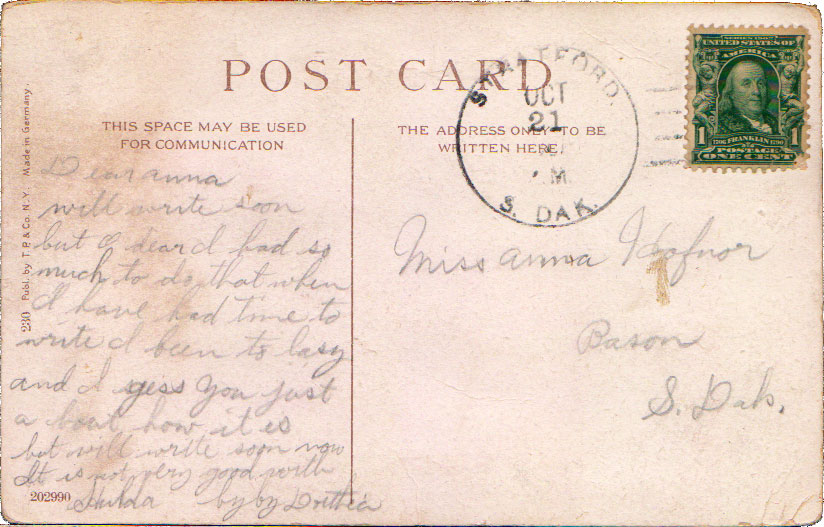 POST CARD
THIS SPACE MAY BE USED
FOR COMMUNICATION
THE ADDRESS ONLY TO BE
WRITTEN HERE
STRATFORD.
OCT
21
M.
S. DAK.
SERIES 1902
UNITED STATES OF
AMERICA
1 1
1706 FRANKLIN 1790
POSTAGE
ONE CENT
Dear anna
will write soon
but I had so
much to do, that when
I have had time to
write I been to lasy
and I gess you just
a bout how it is
but will write soon now
It is not very good with
Hulda by by Dorthea
Miss anna Hafnor
Bason
S. Dak.
230 Publ. by T. P. & Co. N. Y. Made in Germany.
202990